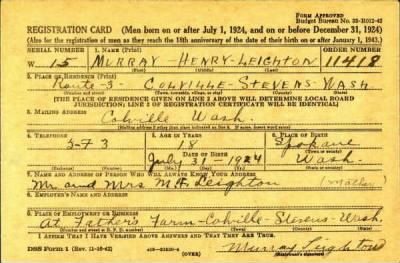 FORM APPROVED
Budget Bureau No. 33-R012-42
REGISTRATION CARD (Men born on or after July 1, 1924, and on or before December 31, 1924)
(Also for the registration of men as they reach the 18th anniversary of the date of their birth on or after January 1, 1943.)
SERIAL NUMBER 1. NAME (Print) ORDER NUMBER
W 15 MURRAY HENRY LEIGHTON 11418
2. PLACE OF RESIDENCE (Print)
Route-3- COLVILLE-STEVENS-WASH
[THE PLACE OF RESIDENCE GIVEN ON LINE 2 ABOVE WILL DETERMINE LOCAL BOARD
JURISDICTION; LINE 2 OF REGISTRATION CERTIFICATE WILL BE IDENTICAL]
3. MAILING ADDRESS
Colville Wash.
4. TELEPHONE 5. AGE IN YEARS 6. PLACE OF BIRTH
573 18 Spokane
DATE OF BIRTH
July 31-1924 Wash.
7. NAME AND ADDRESS OF PERSON WHO WILL ALWAYS KNOW YOUR ADDRESS
Mr. and Mrs M.H. Leighton (Father)
8. EMPLOYER'S NAME AND ADDRESS
9. PLACE OF EMPLOYMENT OR BUSINESS
At Fathers Farm-Colville-Stevens-Wash.
I AFFIRM THAT I HAVE VERIFIED ABOVE ANSWERS AND THAT THEY ARE TRUE.
DSS Form 1 (Rev. 11-16-42) (OVER) Murray Leighton